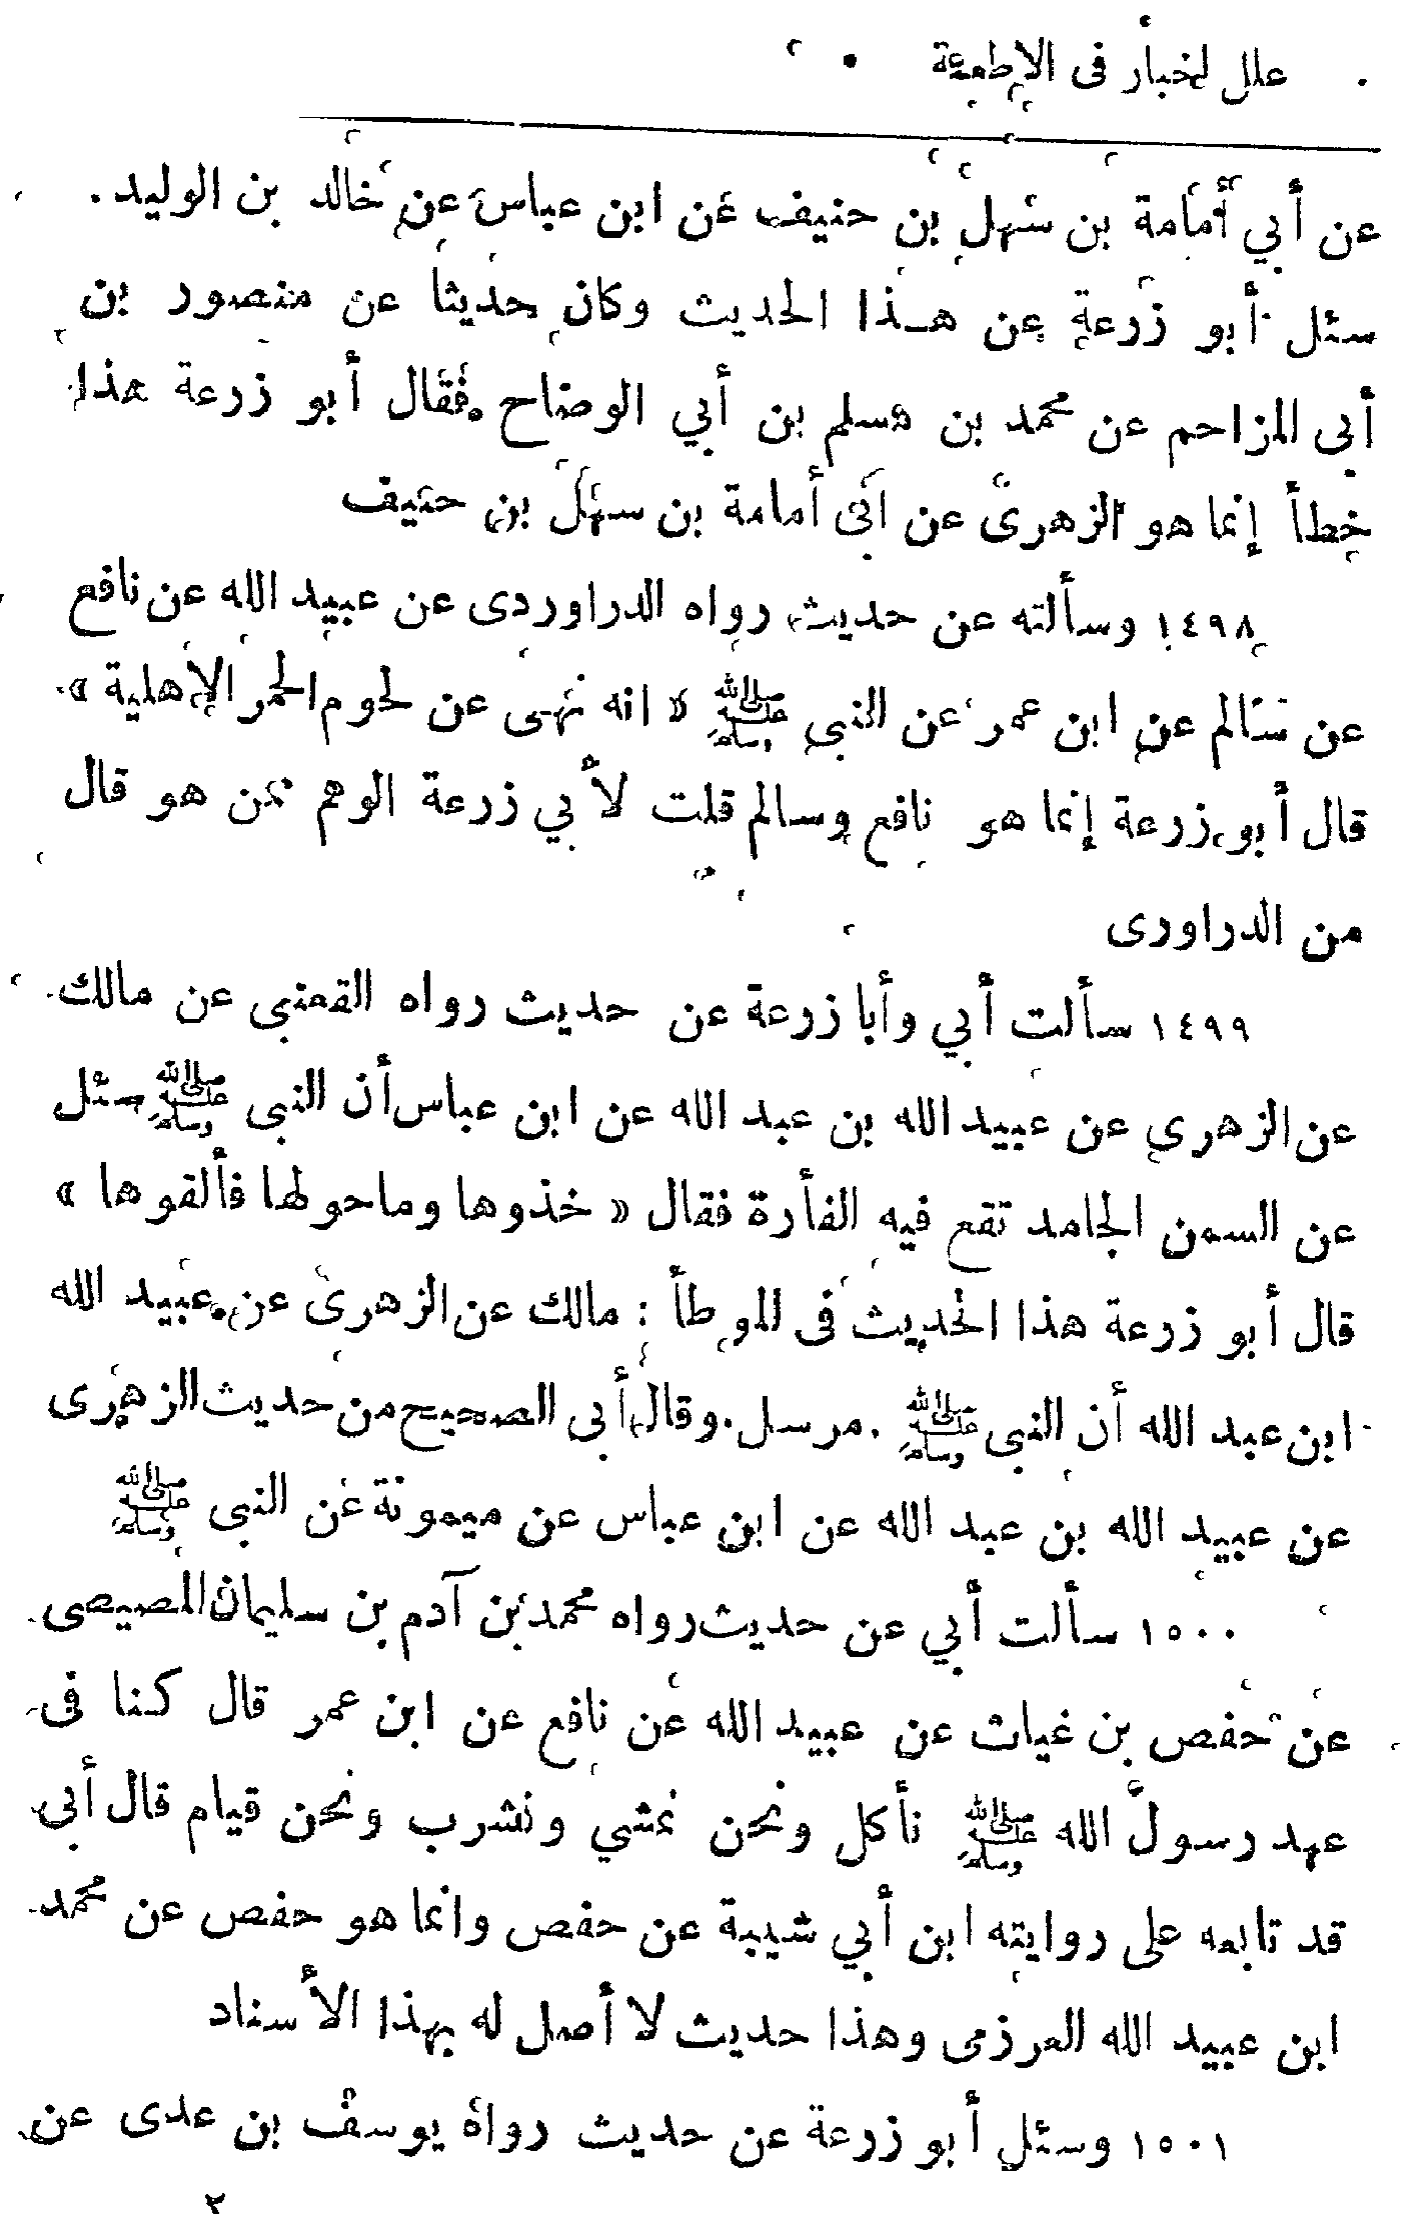 علل لخبار فى الاطعمة
عن أبي أمامة بن سهل بن حنيف عن ابن عباس عن خالد بن الوليد .
سئل أبو زرعة عن هـذا الحديث وكان حديثا عن منصور بن
أبى المزاحم عن محمد بن مسلم بن أبي الوضاح فقال أبو زرعة هذا
خطأ إنما هو الزهرى عن ابى أمامة بن سهل بن حنيف
١٤٩٨ وسألته عن حديث رواه الدراوردى عن عبيد الله عن نافع
عن سالم عن ابن عمر عن النبى ﷺ « انه نهى عن لحوم الحمر الاهلية »
قال أبو زرعة إنما هو نافع وسالم قلت لأبي زرعة الوهم ممن هو قال
من الدراورى
١٤٩٩ سألت أبي وأبا زرعة عن حديث رواه القعنبى عن مالك
عن الزهرى عن عبيد الله بن عبد الله عن ابن عباس أن النبى ﷺ سئل
عن السمن الجامد تقع فيه الفأرة فقال « خذوها وماحولها فألقوها »
قال أبو زرعة هذا الحديث فى الموطأ : مالك عن الزهرى عن عبيد الله
ابن عبد الله أن النبى ﷺ . مرسل . وقال أبى الصحيح من حديث الزهرى
عن عبيد الله بن عبد الله عن ابن عباس عن ميمونة عن النبى ﷺ
١٥٠٠ سألت أبي عن حديث رواه محمد بن آدم بن سليمان المصيصى
عن حفص بن غياث عن عبيد الله عن نافع عن ابن عمر قال كنا فى
عهد رسول الله ﷺ نأكل ونحن نمشي ونشرب ونحن قيام قال أبى
قد تابعه على روايته ابن أبي شيبة عن حفص وانما هو حفص عن محمد
ابن عبيد الله العرزمى وهذا حديث لا أصل له بهذا الأسناد
١٥٠١ وسئل أبو زرعة عن حديث رواه يوسف بن عدى عن
٢